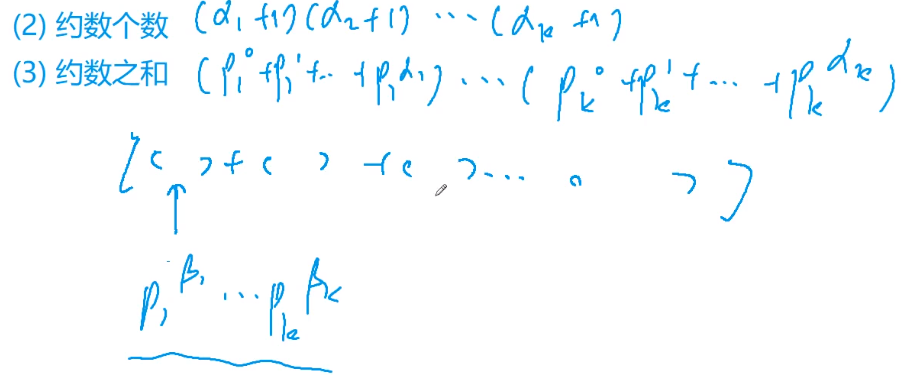 (2) 约数个数 (α₁+1)(α₂+1) ⋯ (αₖ+1)
(3) 约数之和 (p₁⁰+p₁¹+⋯+p₁^α₁) ⋯ (pₖ⁰+pₖ¹+⋯+pₖ^αₖ)
[( )+( )+( )⋯( )]
p₁^β₁ ⋯ pₖ^βₖ